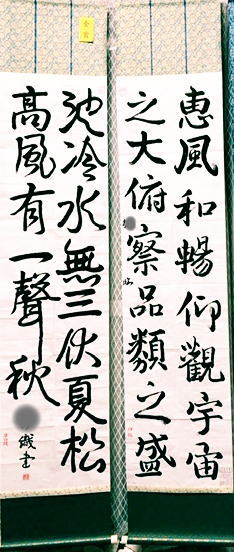 恵風和暢仰觀宇宙
之大俯察品類之盛
池冷水無三伏夏松
高風有一聲秋
織書